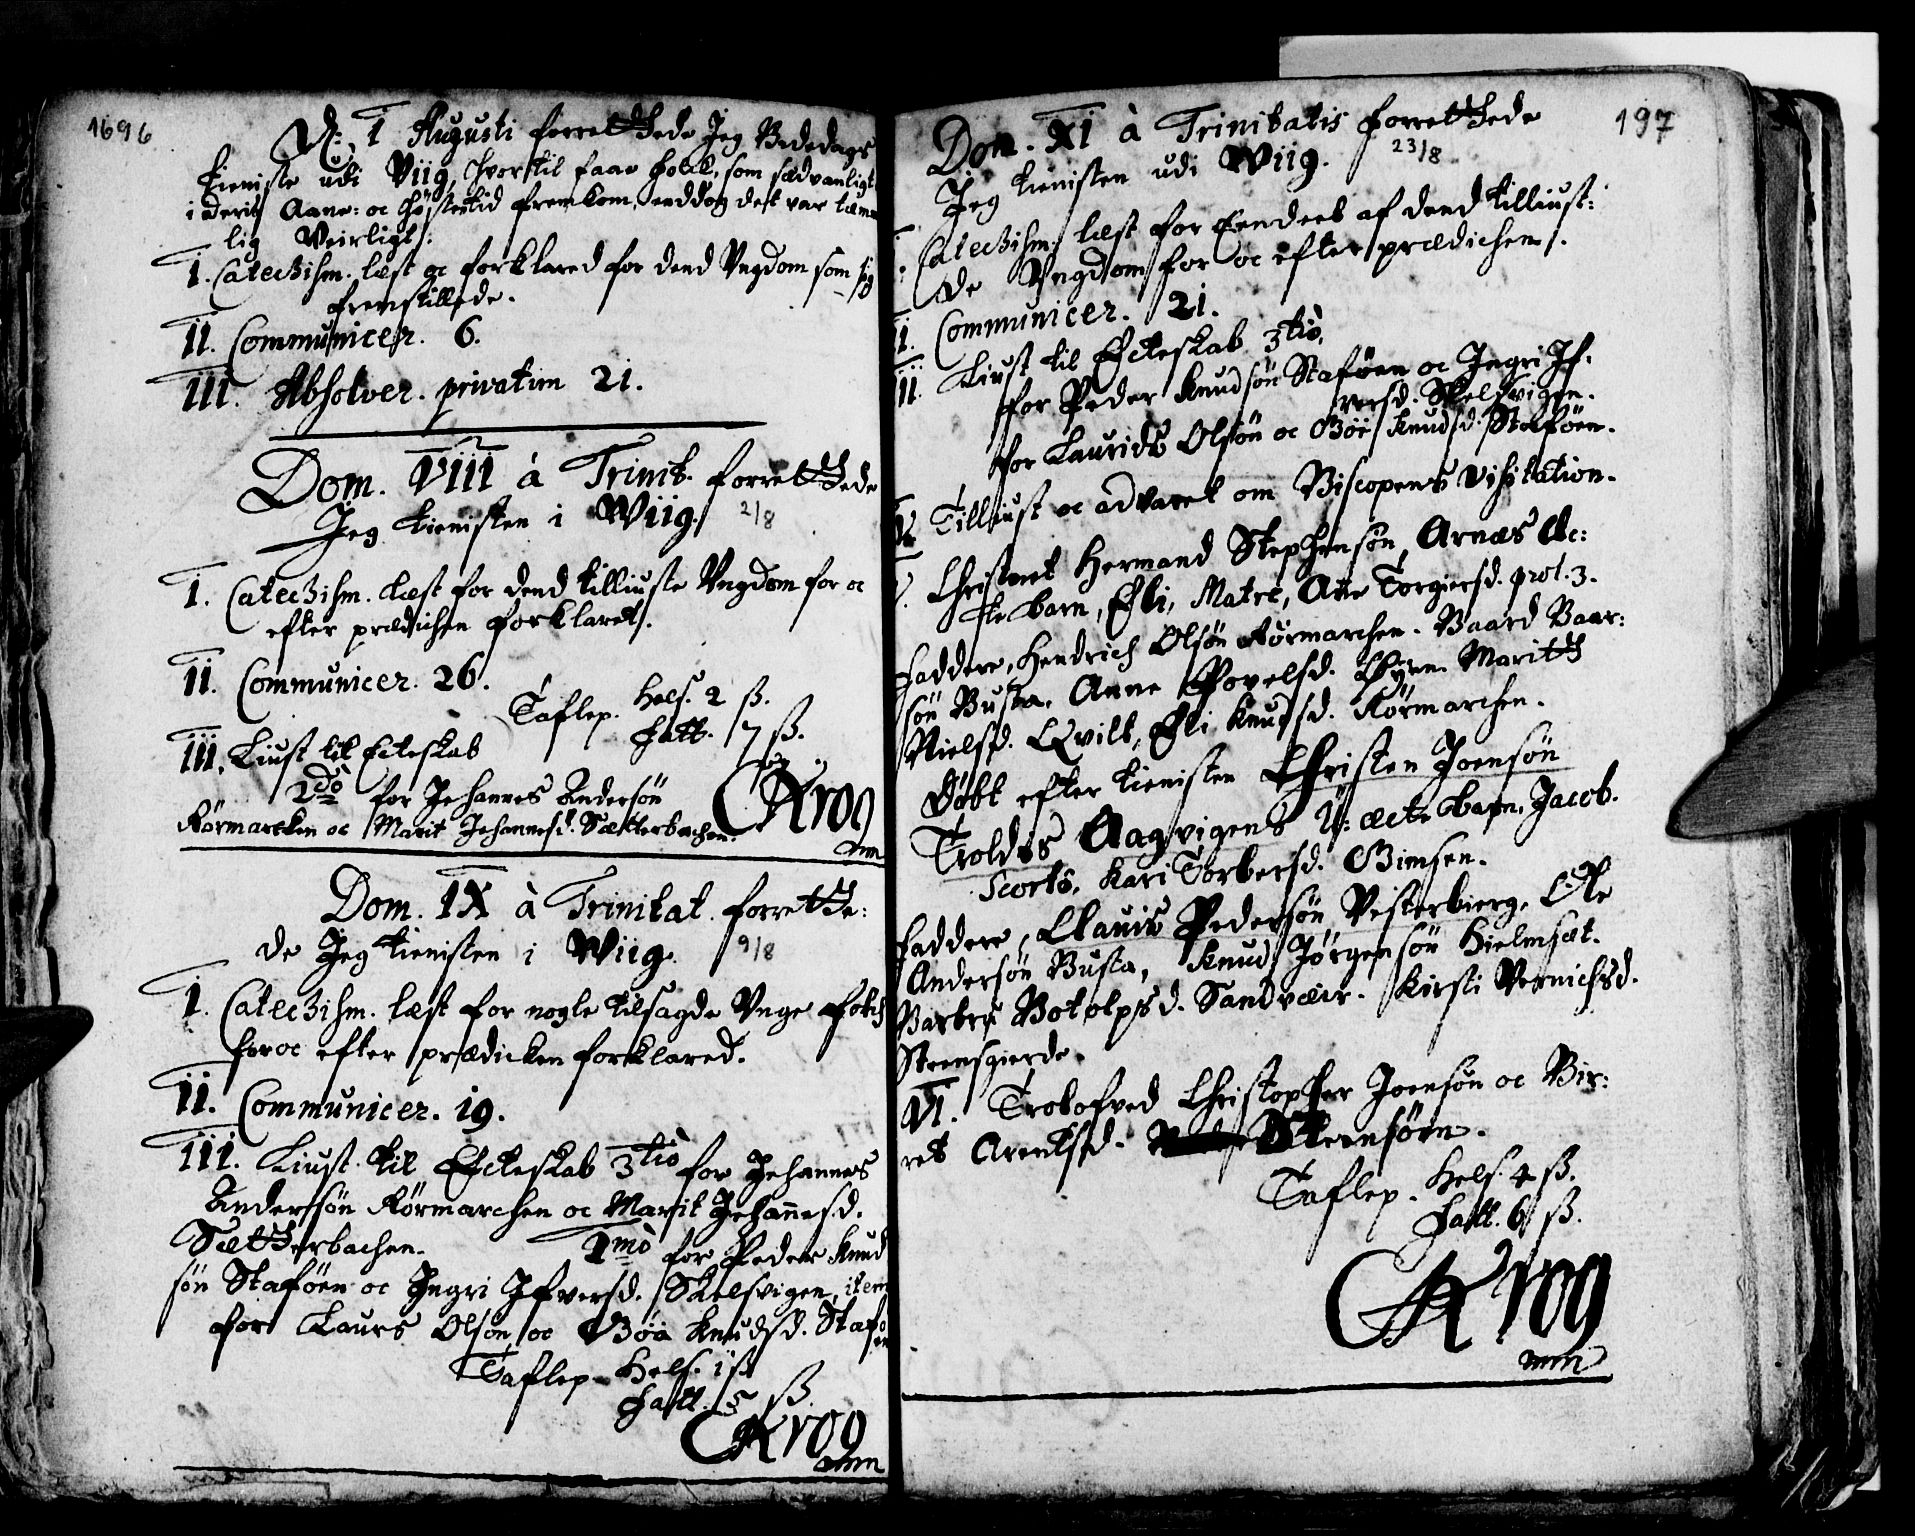 1696
D. 1 Augusti forrettede Jeg Bededags
tieniste udi Viig, hvortil faae folck, som sædvanligt
i deris Aann: oc Høstetid fremkom, enddog det var tæm
lig Veirligt:
I. Catechism. læst oc forklared for dend Ungdom som sig
fremstillede.
II. Communicer. 6.
III. Absolver. privatim 21.
Dom. VIII à Trinit. forrettede
Jeg tienisten i Wiig. 2/8
I. Catechism. læst for dend tilliuste Ungdom for oc
efter prædichen forklaret.
II. Communicer. 26.
Taflep. Hels. 2 ß.
Fatt. 7 ß.
III. Liust til Ecteskab
2do for Johannes Andersøn
Rörmarcken oc Marit Johannesd. Sætterbachen.
CKrog
mm
Dom. IX à Trinitat. forrette:
de Jeg tienisten i Wiig. 9/8
I. Catechism. læst for nogle tilsagde Unge folch
for oc efter prædicken forklared.
II. Communicer. 19.
III. Liust til Ecteskab 3tiò for Johannes
Andersøn Rörmarchen oc Marit Johannesd.
Sætterbachen. 1mò for Peder Knud
søn Staføen oc Ingri Ifversd. Skelsvigen, item
for Laurs Olsøn oc Böe Knudsd. Stafø
en
Taflep. Hels. 1 ß
Fatt. 5 ß.
CKrog
mm
197
Dom. XI à Trinitatis forrettede
Jeg tienisten udi Wiig. 23/8
I. Catechism. læst for Eendeel af dend tilliust:
de Ungdom for oc efter prædichen.
II. Communicer. 21.
III. Liust til Ecteskab 3tiò,
for Peder Knudsøn Staføen oc Ingri If:
versd. Skelsvigen.
for Laurids Olsøn oc Böe Knudsd. Staføen.
IV. Tilliust oc advaret om Biscopens Visitation.
V. Christnet Hermand Stephensøn, Arnæs Ec:
te barn, Eli, Matre, Ane Torgiersd. prol. 3.
Faddere, Hendrich Olsøn Rörmarchen. Baard Baar:
søn Busta, Anne Povelsd. Maritt
Nielsd. Qvilt, Eli Knudsd. Rörmarchen.
Døbt efter tienisten Christen Joensøn
Troldis Aagvigens U: æcte barn, Jacob.
Scorts, Kari Torbersd. Gimsen.
Faddere, Clauis Pedersøn Vesterbierg, Ole
Andersøn Busta, Knud Jørgensøn Hielmsæt.
Barbra Botolpsd. Sandvæer. Kirsti Vernichsd.
Steensgierde.
VI. Trolofved Christopher Joensøn oc Bir:
ret Arentsd. Steensøen.
Taflep. Hels. 4 ß.
Fatt. 6 ß.
CKrog
mm